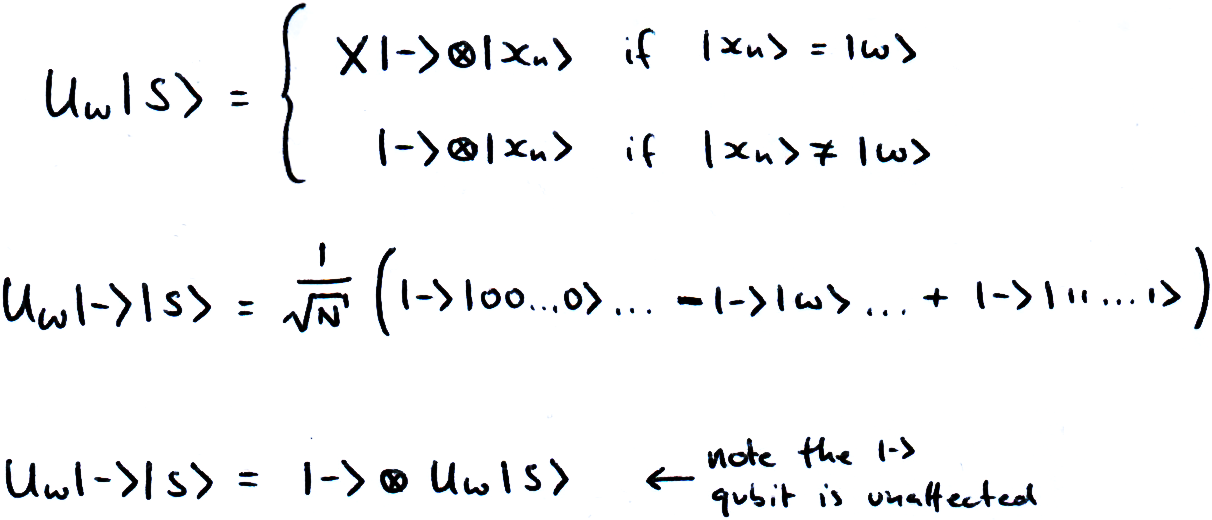 U_ω|S⟩ = { X|-⟩⊗|xₙ⟩ if |xₙ⟩ = |ω⟩
|-⟩⊗|xₙ⟩ if |xₙ⟩ ≠ |ω⟩
U_ω|-⟩|S⟩ = 1/√N (|-⟩|00...0⟩... -|-⟩|ω⟩... + |-⟩|11...1⟩)
U_ω|-⟩|S⟩ = |-⟩⊗U_ω|S⟩ ← note the |-⟩
qubit is unaffected